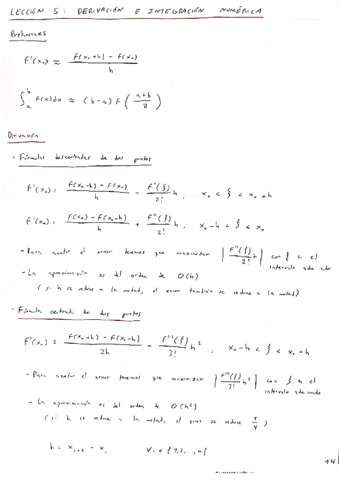 LECCIÓN 5: DERIVACIÓN E INTEGRACIÓN NUMÉRICA
Preliminares
f'(x₀) ≈ (f(x₀+h) - f(x₀)) / h
∫ₐᵇ f(x)dx ≈ (b-a) f((a+b)/2)
Derivación
· Fórmulas descentradas de dos puntos
f'(x₀) = (f(x₀+h) - f(x₀)) / h - (f''(ξ) / 2!) h , x₀ < ξ < x₀+h
f'(x₀) = (f(x₀) - f(x₀-h)) / h + (f''(ξ) / 2!) h , x₀-h < ξ < x₀
- Para acotar el error tenemos que maximizar |(f''(ξ) / 2!) h| con ξ ∈ el intervalo adecuado
- La aproximación es del orden de O(h)
(si h se reduce a la mitad, el error también se reduce a la mitad)
· Fórmula centrada de dos puntos
f'(x₀) = (f(x₀+h) - f(x₀-h)) / 2h - (f'''(ξ) / 3!) h² , x₀-h < ξ < x₀+h
- Para acotar el error tenemos que maximizar |(f'''(ξ) / 3!) h²| con ξ ∈ el intervalo adecuado
- La aproximación es de orden de O(h²)
(si h se reduce a la mitad, el error se reduce 1/4)
h = xᵢ₊₁ - xᵢ ∀i ∈ {1,2,...,n}
14